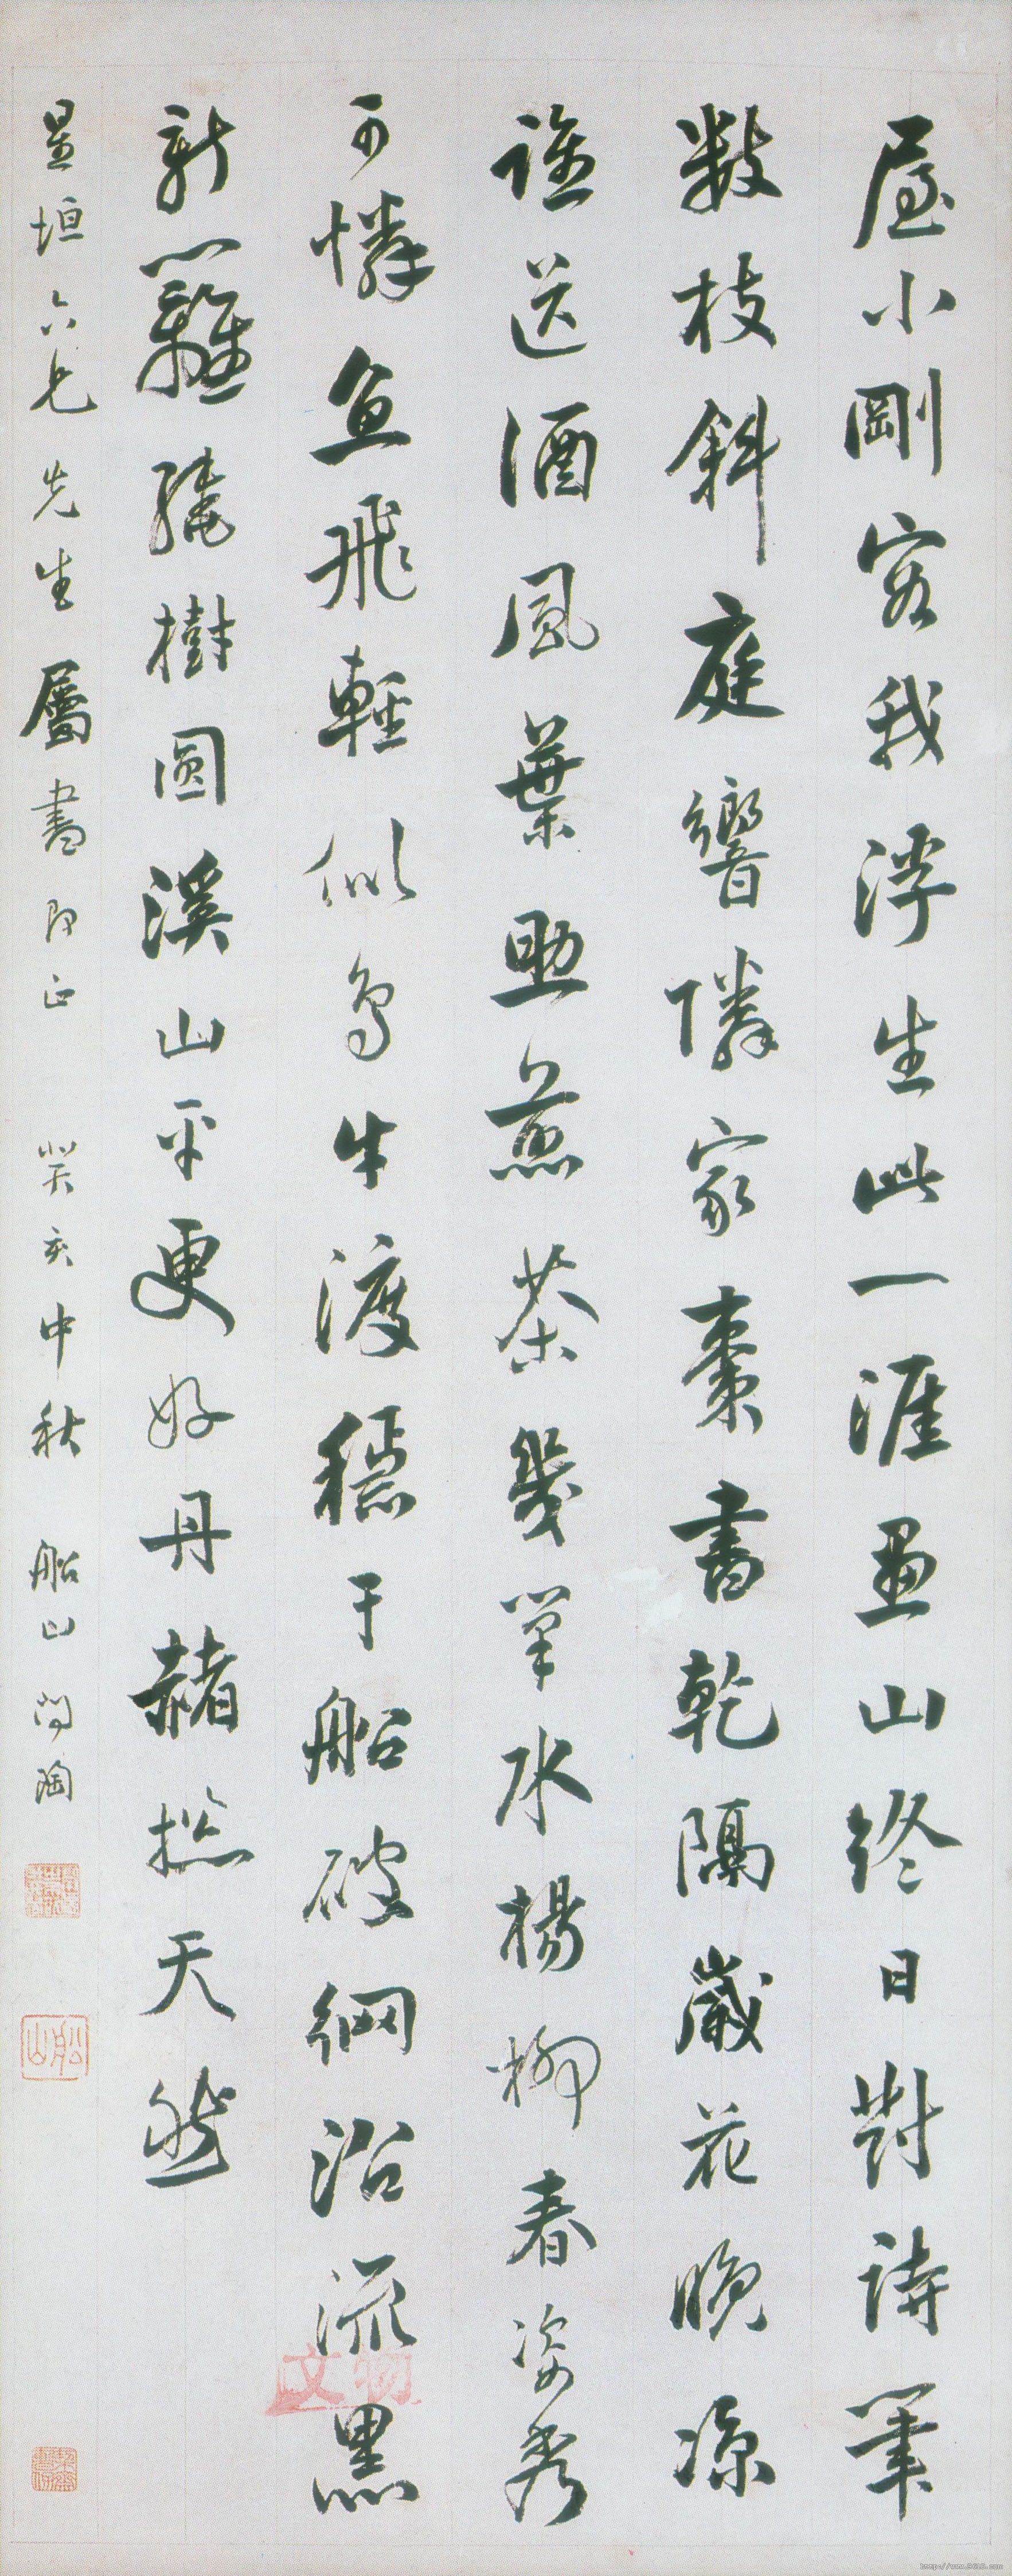 屋小剛容我浮生此一涯畫山終日對詩筆
數枝斜庭響隣家棗書乾隔歲花晚涼
誰送酒風葉助煎茶幾筆水楊柳春姿秀
可憐魚飛輕似鳥牛渡穩于船破網沿流黑
新蘿繞樹圓溪山平更好丹赭总天然
星垣六兄先生屬書即正 癸亥中秋 船山問陶
船山
文物
http://www.9610.com